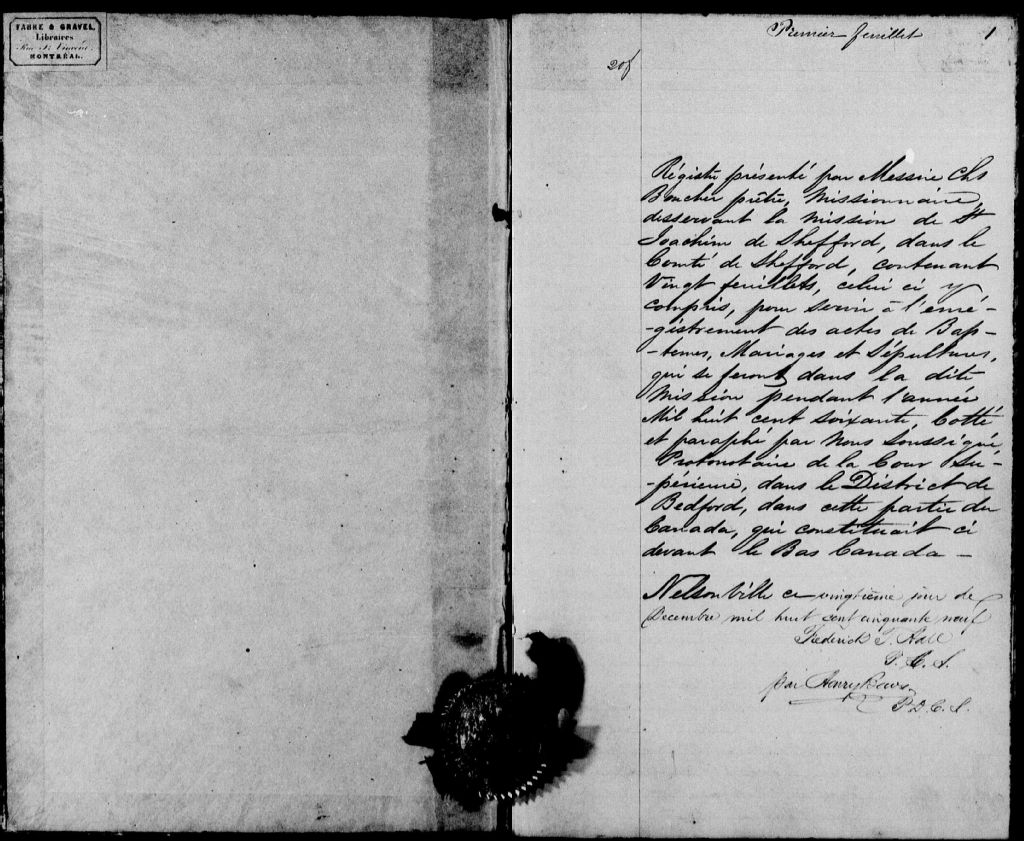 FABRE & GRAVEL,
Libraires
Rue St. Vincent,
MONTRÉAL.
Premier feuillet
1
20f
Régistre présenté par Messire Chs
Boucher prêtre, Missionnaire,
desservant la mission de St
Joachim de Shefford, dans le
Comté de Shefford, contenant
Vingt feuillets, celui ci y
compris, pour servir à l'enré-
-gistrement des actes de Bap-
-temes, Mariages et Sépultures,
qui se feront dans la dite
Mission pendant l'année
Mil huit cent soixante, Cotté
et paraphé par Nous Soussigné,
Protonotaire de la Cour Su-
-périeure, dans le District de
Bedford, dans cette partie du
Canada, qui constituait ci
devant le Bas Canada -
Nelsonville ce vingtième jour de
Decembre mil huit cent cinquante neuf
Frederick T. Hall
P. C. S.
par Henry
P. D. C. S.